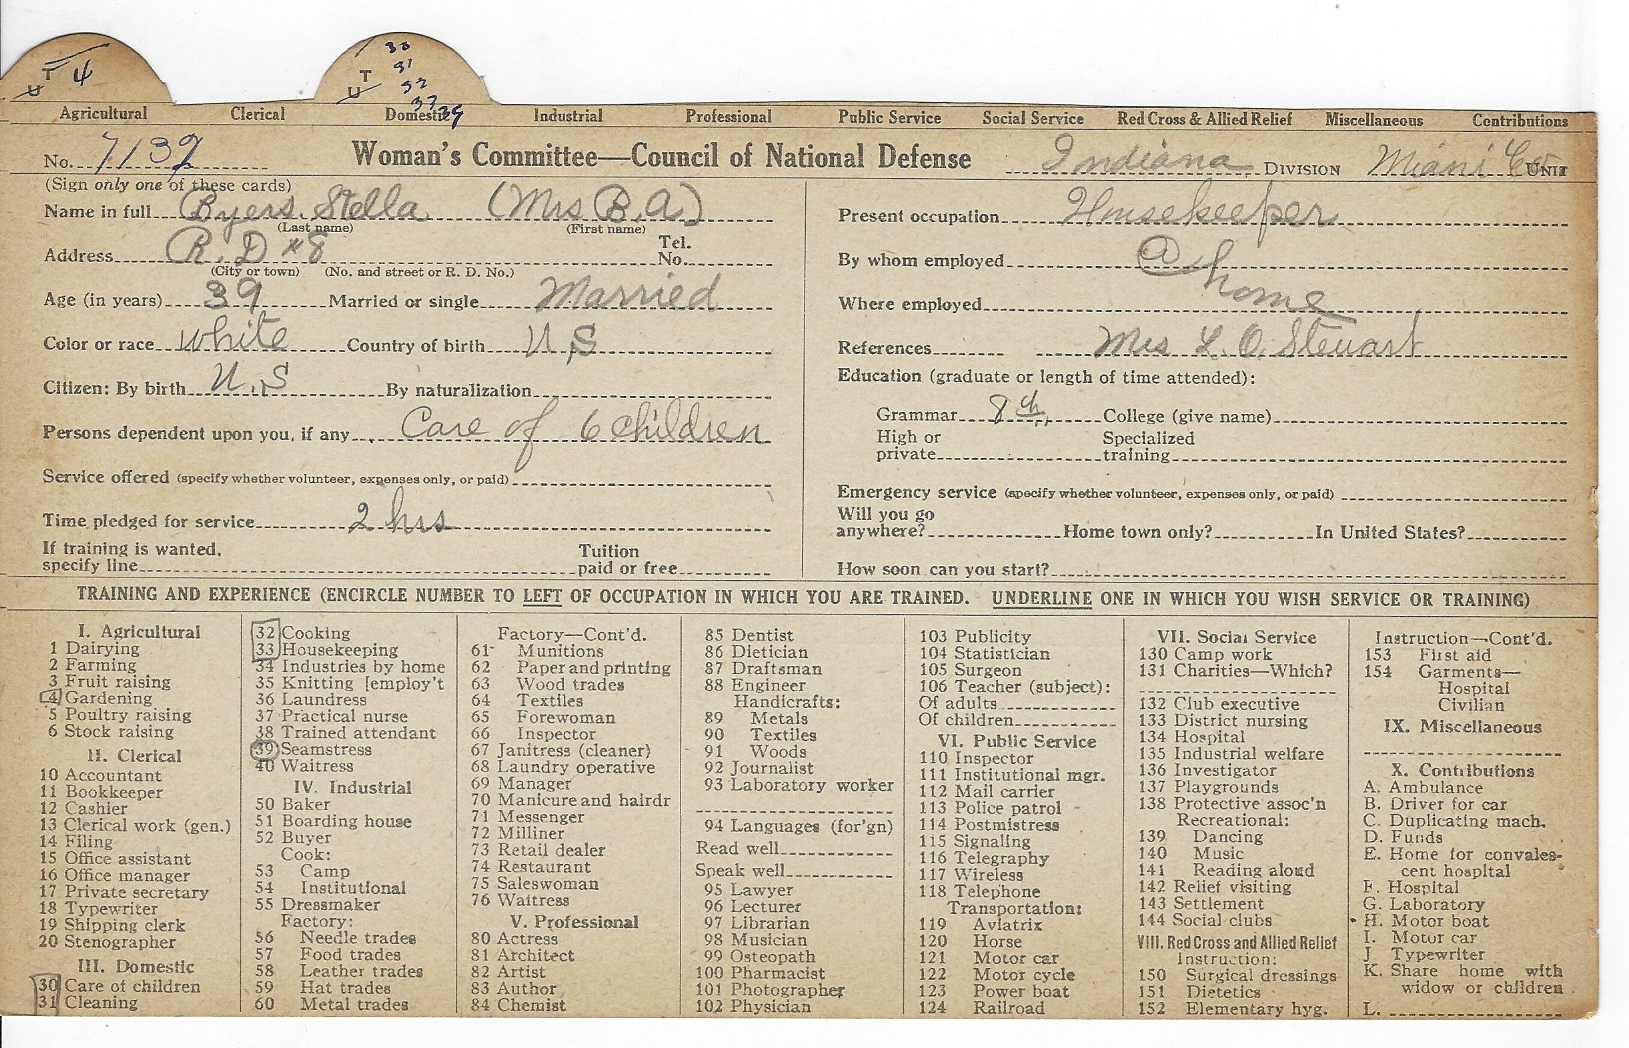 T 4
U
T 30
U 31
32
33 39
Agricultural Clerical Domestic Industrial Professional Public Service Social Service Red Cross & Allied Relief Miscellaneous Contributions
No. 7139 Woman's Committee—Council of National Defense Indiana DIVISION Miami Co UNIT
(Sign only one of these cards)
Name in full Byers. Stella (Mrs B.A.)
(Last name) (First name)
Address R.D #8 Tel. No.
(City or town) (No. and street or R. D. No.)
Age (in years) 39 Married or single Married
Color or race white Country of birth U.S
Citizen: By birth U.S By naturalization
Persons dependent upon you, if any Care of 6 children
Service offered (specify whether volunteer, expenses only, or paid)
Time pledged for service 2 hrs
If training is wanted, Tuition
specify line paid or free
Present occupation Housekeeper
By whom employed @ home
Where employed
References Mrs L.O. Steuart
Education (graduate or length of time attended):
Grammar 8th College (give name)
High or Specialized
private training
Emergency service (specify whether volunteer, expenses only, or paid)
Will you go
anywhere? Home town only? In United States?
How soon can you start?
TRAINING AND EXPERIENCE (ENCIRCLE NUMBER TO LEFT OF OCCUPATION IN WHICH YOU ARE TRAINED. UNDERLINE ONE IN WHICH YOU WISH SERVICE OR TRAINING)
I. Agricultural
1 Dairying
2 Farming
3 Fruit raising
4 Gardening
5 Poultry raising
6 Stock raising
II. Clerical
10 Accountant
11 Bookkeeper
12 Cashier
13 Clerical work (gen.)
14 Filing
15 Office assistant
16 Office manager
17 Private secretary
18 Typewriter
19 Shipping clerk
20 Stenographer
III. Domestic
30 Care of children
31 Cleaning
32 Cooking
33 Housekeeping
34 Industries by home
35 Knitting [employ't
36 Laundress
37 Practical nurse
38 Trained attendant
39 Seamstress
40 Waitress
IV. Industrial
50 Baker
51 Boarding house
52 Buyer
Cook:
53 Camp
54 Institutional
55 Dressmaker
Factory:
56 Needle trades
57 Food trades
58 Leather trades
59 Hat trades
60 Metal trades
Factory—Cont'd.
61 Munitions
62 Paper and printing
63 Wood trades
64 Textiles
65 Forewoman
66 Inspector
67 Janitress (cleaner)
68 Laundry operative
69 Manager
70 Manicure and hairdr
71 Messenger
72 Milliner
73 Retail dealer
74 Restaurant
75 Saleswoman
76 Waitress
V. Professional
80 Actress
81 Architect
82 Artist
83 Author
84 Chemist
85 Dentist
86 Dietician
87 Draftsman
88 Engineer
Handicrafts:
89 Metals
90 Textiles
91 Woods
92 Journalist
93 Laboratory worker
94 Languages (for'gn)
Read well
Speak well
95 Lawyer
96 Lecturer
97 Librarian
98 Musician
99 Osteopath
100 Pharmacist
101 Photographer
102 Physician
103 Publicity
104 Statistician
105 Surgeon
106 Teacher (subject):
Of adults
Of children
VI. Public Service
110 Inspector
111 Institutional mgr.
112 Mail carrier
113 Police patrol
114 Postmistress
115 Signaling
116 Telegraphy
117 Wireless
118 Telephone
Transportation:
119 Aviatrix
120 Horse
121 Motor car
122 Motor cycle
123 Power boat
124 Railroad
VII. Social Service
130 Camp work
131 Charities—Which?
132 Club executive
133 District nursing
134 Hospital
135 Industrial welfare
136 Investigator
137 Playgrounds
138 Protective assoc'n
Recreational:
139 Dancing
140 Music
141 Reading aloud
142 Relief visiting
143 Settlement
144 Social clubs
VIII. Red Cross and Allied Relief
Instruction:
150 Surgical dressings
151 Dietetics
152 Elementary hyg.
Instruction—Cont'd.
153 First aid
154 Garments—
Hospital
Civilian
IX. Miscellaneous
X. Contributions
A. Ambulance
B. Driver for car
C. Duplicating mach.
D. Funds
E. Home for convales-
cent hospital
F. Hospital
G. Laboratory
H. Motor boat
I. Motor car
J. Typewriter
K. Share home with
widow or children
L.